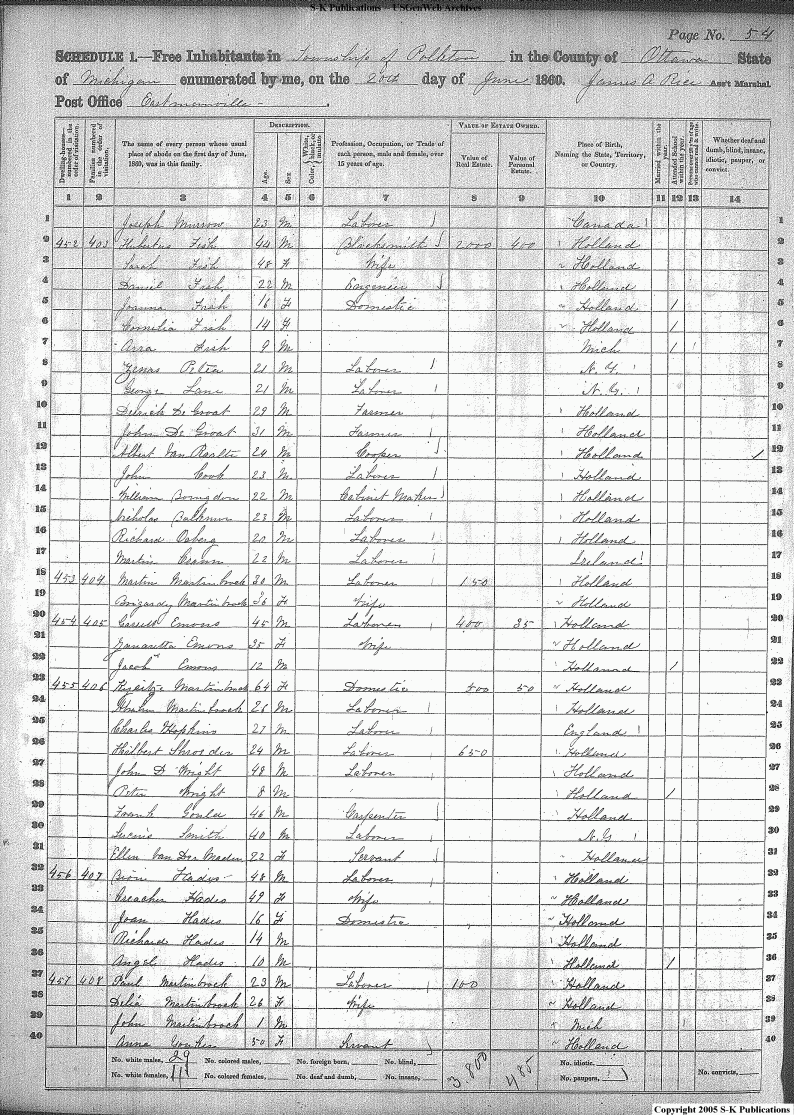 S-K Publications – USGenWeb Archives
Page No. 54
SCHEDULE 1.—Free Inhabitants in Township of Polkton in the County of Ottawa State
of Michigan enumerated by me, on the 20th day of June 1860. James A Rice Ass't Marshal
Post Office Eastmanville
Dwelling-houses numbered in the order of visitation. Families numbered in the order of visitation. The name of every person whose usual place of abode on the first day of June, 1860, was in this family. DESCRIPTION. Age. Sex. Color, White, black, or mulatto. Profession, Occupation, or Trade of each person, male and female, over 15 years of age. VALUE OF ESTATE OWNED. Value of Real Estate. Value of Personal Estate. Place of Birth, Naming the State, Territory, or Country. Married within the year. Attended School within the year. Whether deaf and dumb, blind, insane, idiotic, pauper, or convict.
1 2 3 4 5 6 7 8 9 10 11 12 13 14
1 Joseph Murrow 23 M Laborer Canada 1
2 452 403 Hubertus Fish 44 M Blacksmith 2000 400 Holland 2
3 Sarah Fish 48 F Wife " Holland 3
4 Daniel Fish 22 M Engineer Holland 4
5 Joanna Fish 16 F Domestic " Holland 1 5
6 Cornelia Fish 14 F " Holland 1 6
7 Fish 9 M Mich 1 7
8 Zenas 21 M Laborer N.Y. 8
9 George Lane 21 M Laborer N.Y. 9
10 De Groat 29 M Farmer Holland 10
11 John De Groat 31 M Farmer Holland 11
12 Albert Van Raalte 24 M Cooper Holland 1 12
13 John Cook 23 M Laborer Holland 13
14 William 22 M Cabinet Maker Holland 14
15 Nicholas 23 M Laborer Holland 15
16 Richard Osberg 20 M Laborer Holland 16
17 Martin 22 M Laborer Ireland 17
18 453 404 Martin Martinbrock 30 M Laborer 150 Holland 18
19 Martinbrock 36 F Wife " Holland 19
20 454 405 Garrett Emons 45 M Laborer 400 35 Holland 20
21 Emons 35 F Wife " Holland 21
22 Jacob Emons 12 M Holland 1 22
23 455 406 Martinbrock 64 F Domestic 500 50 " Holland 23
24 Martinbrock 26 M Laborer Holland 24
25 Charles Hopkins 27 M Laborer England 25
26 Hilbert Shroeder 24 M Laborer 650 Holland 26
27 John D Wright 48 M Laborer Holland 27
28 Peter Wright 8 M Holland 1 28
29 Frank Gould 46 M Carpenter Holland 29
30 Smith 40 M Laborer N.Y 30
31 Ellen Van Der 22 F Servant " Holland 31
32 456 407 Hades 48 M Laborer Holland 32
33 Hades 49 F Wife " Holland 33
34 Joan Hades 16 F Domestic " Holland 34
35 Richard Hades 14 M Holland 35
36 Angel Hades 10 M Holland 1 36
37 457 408 Paul Martinbrock 23 M Laborer 100 Holland 37
38 Delia Martinbrock 26 F Wife " Holland 38
39 John Martinbrock 1 M Mich 39
40 Anna 50 F Servant " Holland 40
No. white males, 29 No. colored males, No. foreign born, No. blind, 3800 485 No. idiotic,
No. white females, 11 No. colored females, No. deaf and dumb, No. insane, No. paupers, 1 No. convicts,
Copyright 2005 S-K Publications